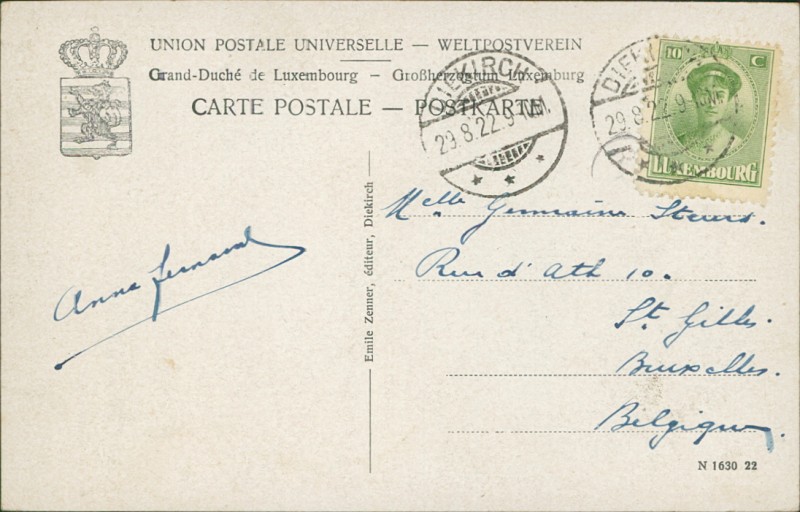 UNION POSTALE UNIVERSELLE — WELTPOSTVEREIN
Grand-Duché de Luxembourg – Großherzogtum Luxemburg
CARTE POSTALE — POSTKARTE
DIEKIRCH
29.8.22.9-
DIEKI
29.8.22.9-
10 C
LUXEMBOURG
Anna Fernand
Emile Zenner, éditeur, Diekirch
Melle Germaine
Rue d'Ath 10.
St. Gilles.
Bruxelles.
Belgique
N 1630 22